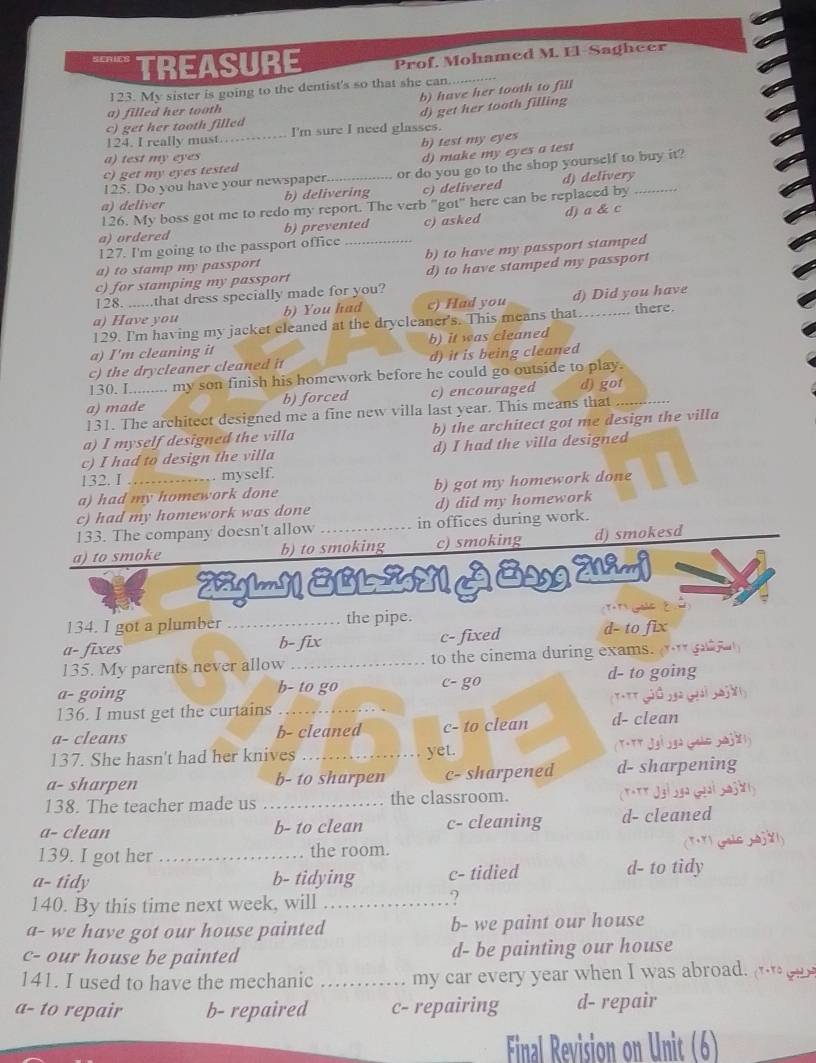 SERIES TREASURE Prof. Mohamed M. El-Sagheer
123. My sister is going to the dentist's so that she can............
a) filled her tooth b) have her tooth to fill
c) get her tooth filled d) get her tooth filling
124. I really must.............. I'm sure I need glasses.
a) test my eyes b) test my eyes
c) get my eyes tested d) make my eyes a test
125. Do you have your newspaper................ or do you go to the shop yourself to buy it?
a) deliver b) delivering c) delivered d) delivery
126. My boss got me to redo my report. The verb "got" here can be replaced by ..........
a) ordered b) prevented c) asked d) a & c
127. I'm going to the passport office ................
a) to stamp my passport b) to have my passport stamped
c) for stamping my passport d) to have stamped my passport
128. ......that dress specially made for you?
a) Have you b) You had c) Had you d) Did you have
129. I'm having my jacket cleaned at the drycleaner's. This means that........... there.
a) I'm cleaning it b) it was cleaned
c) the drycleaner cleaned it d) it is being cleaned
130. I......... my son finish his homework before he could go outside to play.
a) made b) forced c) encouraged d) got
131. The architect designed me a fine new villa last year. This means that ............
a) I myself designed the villa b) the architect got me design the villa
c) I had to design the villa d) I had the villa designed
132. I .............. myself.
a) had my homework done b) got my homework done
c) had my homework was done d) did my homework
133. The company doesn't allow .............. in offices during work.
a) to smoke b) to smoking c) smoking d) smokesd
134. I got a plumber .................. the pipe.
a- fixes b- fix c- fixed d- to fix
135. My parents never allow ..................... to the cinema during exams. (استرشادي ٢٠٢٢)
a- going b- to go c- go d- to going
136. I must get the curtains ................ (الأزهر أدبي دور ثاني ٢٠٢٢)
a- cleans b- cleaned c- to clean d- clean
137. She hasn't had her knives .................. yet. (الأزهر علمي دور أول ٢٠٢٢)
a- sharpen b- to sharpen c- sharpened d- sharpening
138. The teacher made us .................. the classroom. (الأزهر أدبي دور أول ٢٠٢٢)
a- clean b- to clean c- cleaning d- cleaned
139. I got her ...................... the room. (الأزهر علمي ٢٠٢١)
a- tidy b- tidying c- tidied d- to tidy
140. By this time next week, will ...................?
a- we have got our house painted b- we paint our house
c- our house be painted d- be painting our house
141. I used to have the mechanic ............. my car every year when I was abroad.
a- to repair b- repaired c- repairing d- repair
Final Revision on Unit (6)
TREASURE
English